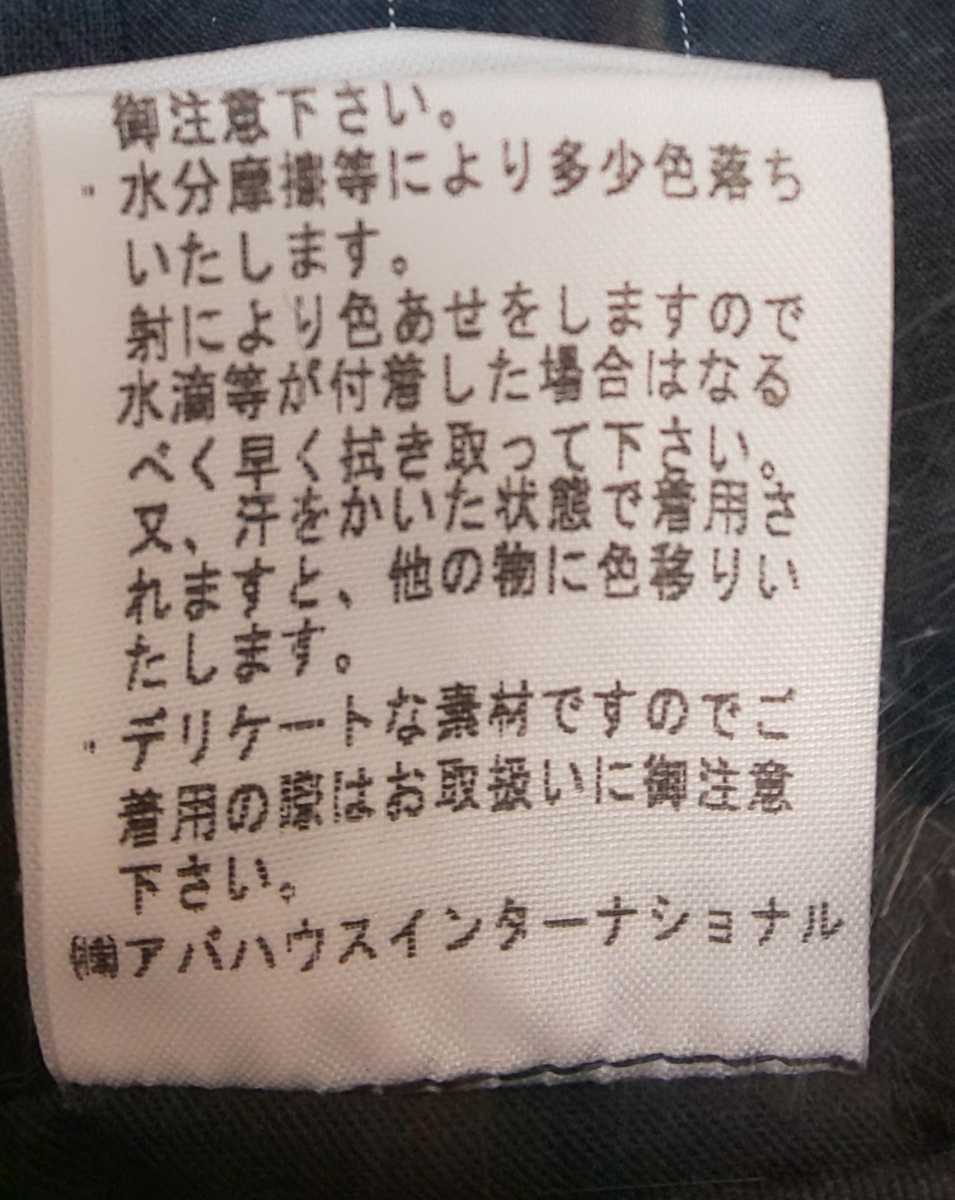 御注意下さい。
・水分摩擦等により多少色落ち
いたします。
射により色あせをしますので
水滴等が付着した場合はなる
べく早く拭き取って下さい。
又、汗をかいた状態で着用さ
れますと、他の物に色移りい
たします。
・デリケートな素材ですのでご
着用の際はお取扱いに御注意
下さい。
㈱アバハウスインターナショナル